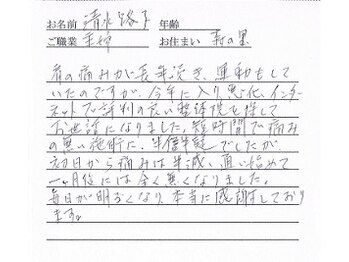 お名前 清水路子 年齢
ご職業 主婦 お住まい 寿の里
肩の痛みが長年続き、運動もして
いたのですが、今年に入り悪化、インター
ネットで評判の良い整体院を探して
お世話になりました。短時間で痛み
の無い施術に、半信半疑でしたが、
初日から痛みは半減、通い始めて
一ヶ月位には全く無くなりました。
毎日が明るくなり、本当に感謝しており
ます。